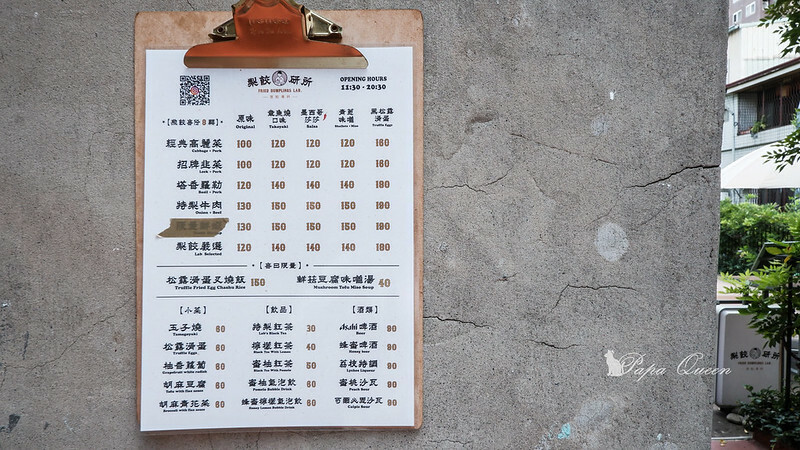 梨餃研所
FRIED DUMPLINGS LAB.
OPENING HOURS
11:30 - 20:30
原味 Original
章魚燒口味 Takoyaki
墨西哥莎莎 Salsa
青蔥味噌
黑松露滑蛋 Truffle Eggs
經典高麗菜 100 120 120 120 160
Cabbage + Pork
招牌韭菜 100 120 120 120 160
Leek + Pork
塔香羅勒 120 140 140 140 180
Basil + Pork
特梨牛肉 130 150 150 150 190
Onion + Beef
130 150 150 150 190
梨餃嚴選 120 140 140 140 180
Lab Selected
【每日限量】
松露滑蛋叉燒飯 150 鮮菇豆腐味噌湯 40
Truffle Fried Egg Chashu Rice Mushroom Tofu Miso Soup
【小菜】 【飲品】 【酒類】
玉子燒 60 特梨紅茶 30 Asahi啤酒 90
Tamagoyaki Lab's Black Tea
松露滑蛋 60 檸檬紅茶 40 蜂蜜啤酒 90
Truffle Eggs Black Tea With Lemon Honey Beer
柚香蘿蔔 60 蜜柚紅茶 50 荔枝特調 90
Grapefruit white radish Black Tea With Pomelo Lychee Liqueur
胡麻豆腐 60 蜜柚氣泡飲 60 蜜桃沙瓦 90
Tofu with flax sauce Pomelo Bubble Drink Peach Sour
胡麻青花菜 60 蜂蜜檸檬氣泡飲 60 可爾必思沙瓦 90
Broccoli with flax sauce Honey Lemon Bubble Drink Calpis Sour
Papa Queen
梨餃研所
FRIED DUMPLINGS LAB.